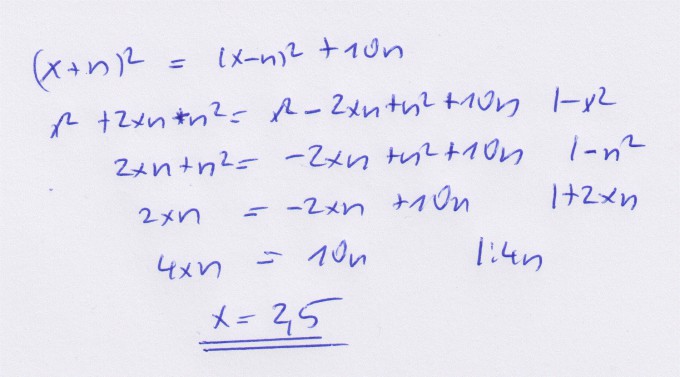 (x+n)² = (x-n)² +10n
x² +2xn+n² = x² - 2xn+n² +10n |-x²
2xn+n² = -2xn +n² +10n |-n²
2xn = -2xn +10n |+2xn
4xn = 10n |:4n
x = 2,5